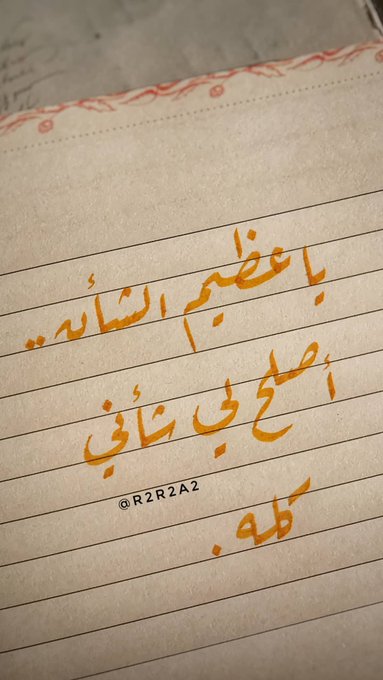 يا عظيم الشأن..
أصلح لي شأني
@R2R2A2
كله.